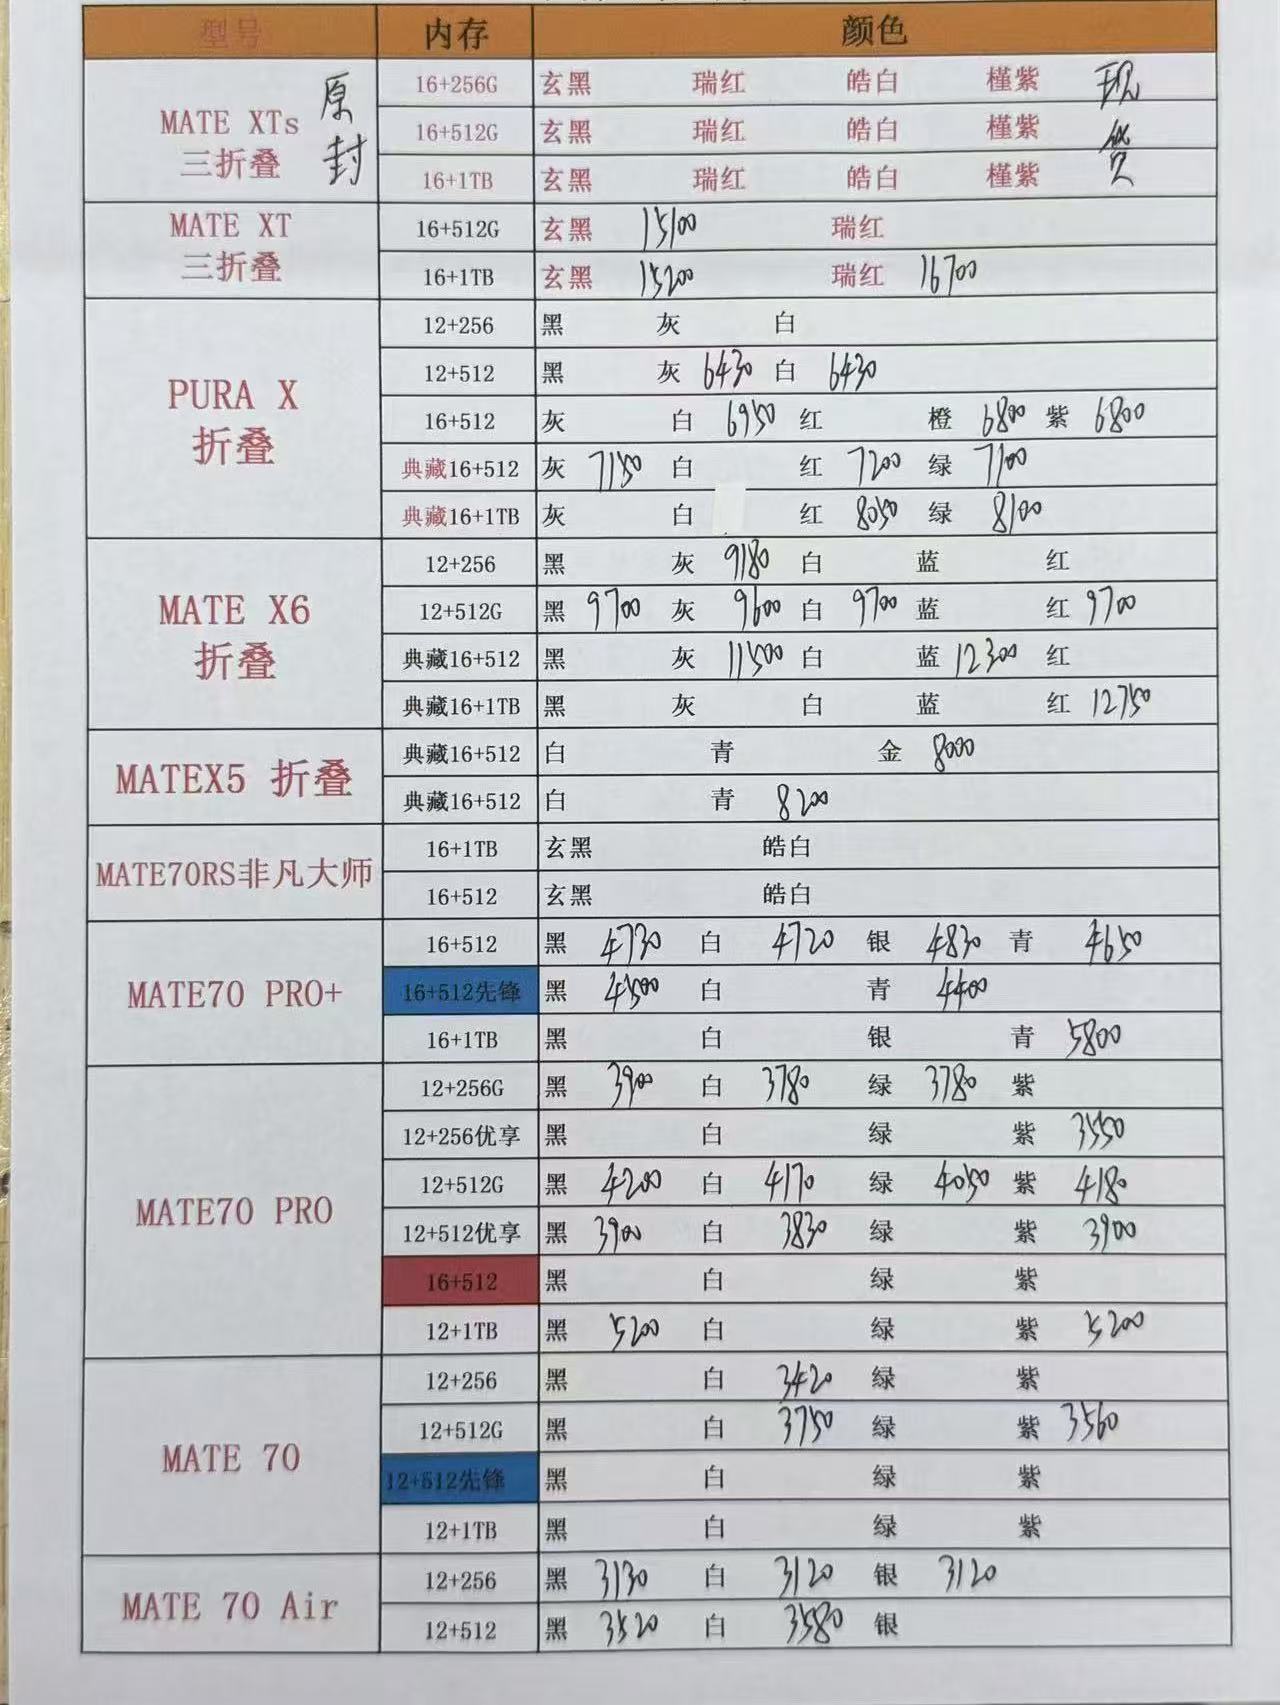 型号 内存 颜色
MATE XTs 三折叠 原封 现货
16+256G 玄黑 瑞红 皓白 槿紫
16+512G 玄黑 瑞红 皓白 槿紫
16+1TB 玄黑 瑞红 皓白 槿紫
MATE XT 三折叠
16+512G 玄黑 15100 瑞红
16+1TB 玄黑 15200 瑞红 16700
PURA X 折叠
12+256 黑 灰 白
12+512 黑 灰 6430 白 6430
16+512 灰 白 6950 红 橙 6800 紫 6800
典藏16+512 灰 7150 白 红 7200 绿 7100
典藏16+1TB 灰 白 红 8050 绿 8100
MATE X6 折叠
12+256 黑 灰 9180 白 蓝 红
12+512G 黑 9700 灰 9600 白 9700 蓝 红 9700
典藏16+512 黑 灰 11500 白 蓝 12300 红
典藏16+1TB 黑 灰 白 蓝 红 12750
MATEX5 折叠
典藏16+512 白 青 金 8000
典藏16+512 白 青 8200
MATE70RS非凡大师
16+1TB 玄黑 皓白
16+512 玄黑 皓白
MATE70 PRO+
16+512 黑 4730 白 4720 银 4830 青 4650
16+512先锋 黑 4500 白 青 4400
16+1TB 黑 白 银 青 5800
MATE70 PRO
12+256G 黑 3900 白 3780 绿 3780 紫
12+256优享 黑 白 绿 紫 3550
12+512G 黑 4200 白 4170 绿 4050 紫 4180
12+512优享 黑 3900 白 3830 绿 紫 3900
16+512 黑 白 绿 紫
12+1TB 黑 5200 白 绿 紫 5200
MATE 70
12+256 黑 白 3420 绿 紫
12+512G 黑 白 3750 绿 紫 3560
12+512先锋 黑 白 绿 紫
12+1TB 黑 白 绿 紫
MATE 70 Air
12+256 黑 3130 白 3120 银 3120
12+512 黑 3520 白 3580 银